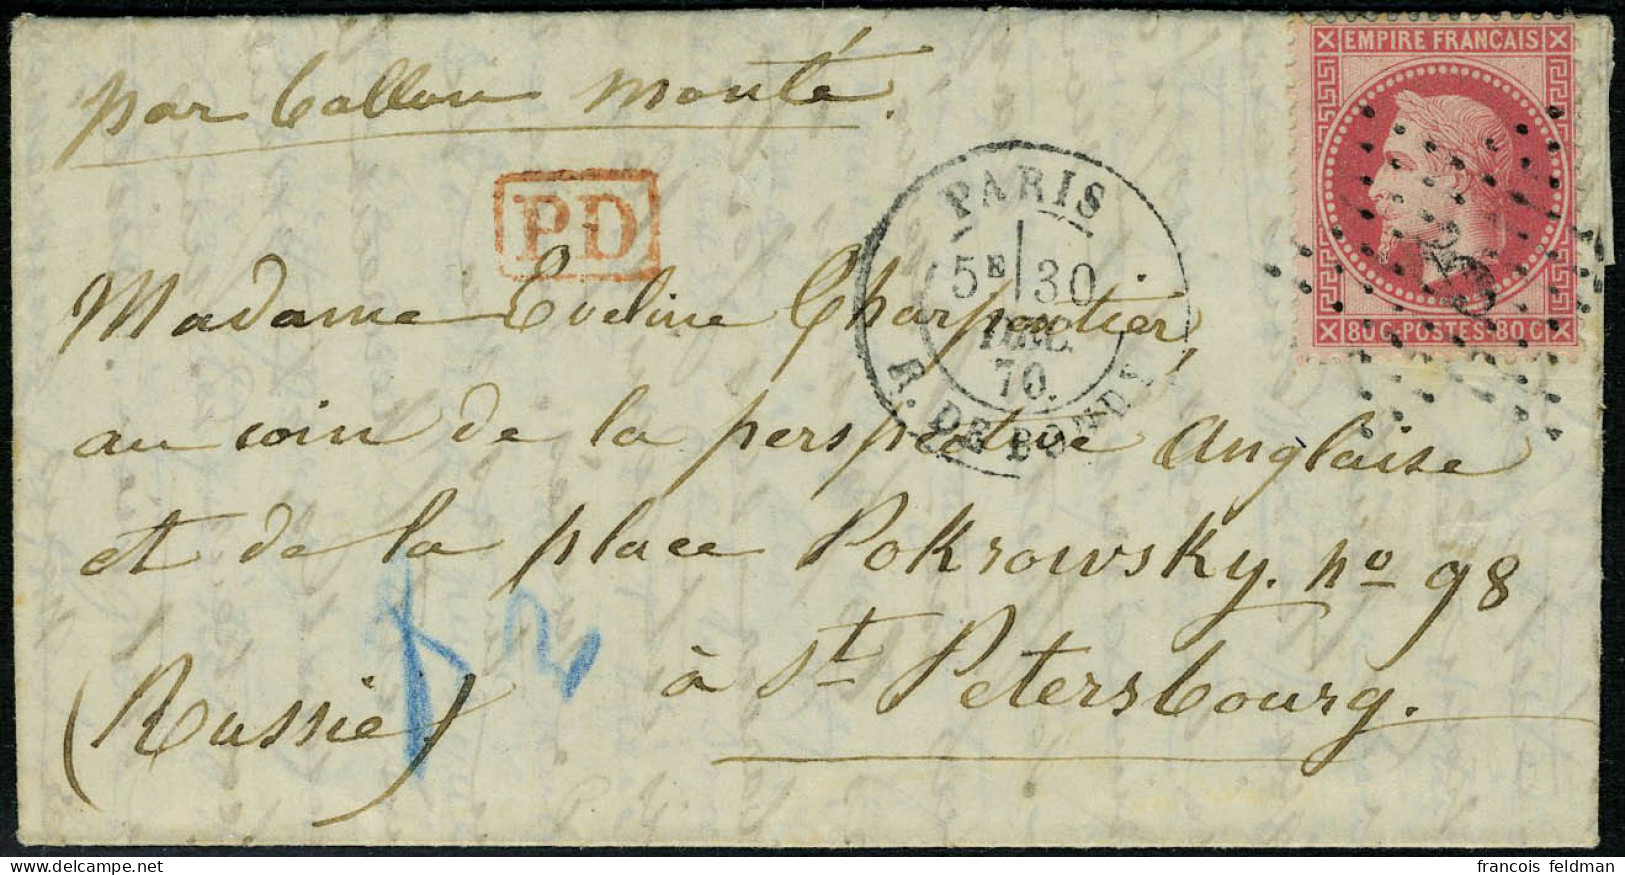 par ballon monté.
EMPIRE FRANÇAIS
80 C POSTES 80 C
PD
PARIS
5E 30
DEC.
70.
R. DE BONDY
Madame Eveline Charpentier,
au coin de la perspective Anglaise
et de la place Pokrowsky. no 98
à St Petersbourg.
(Russie)
francois feldman